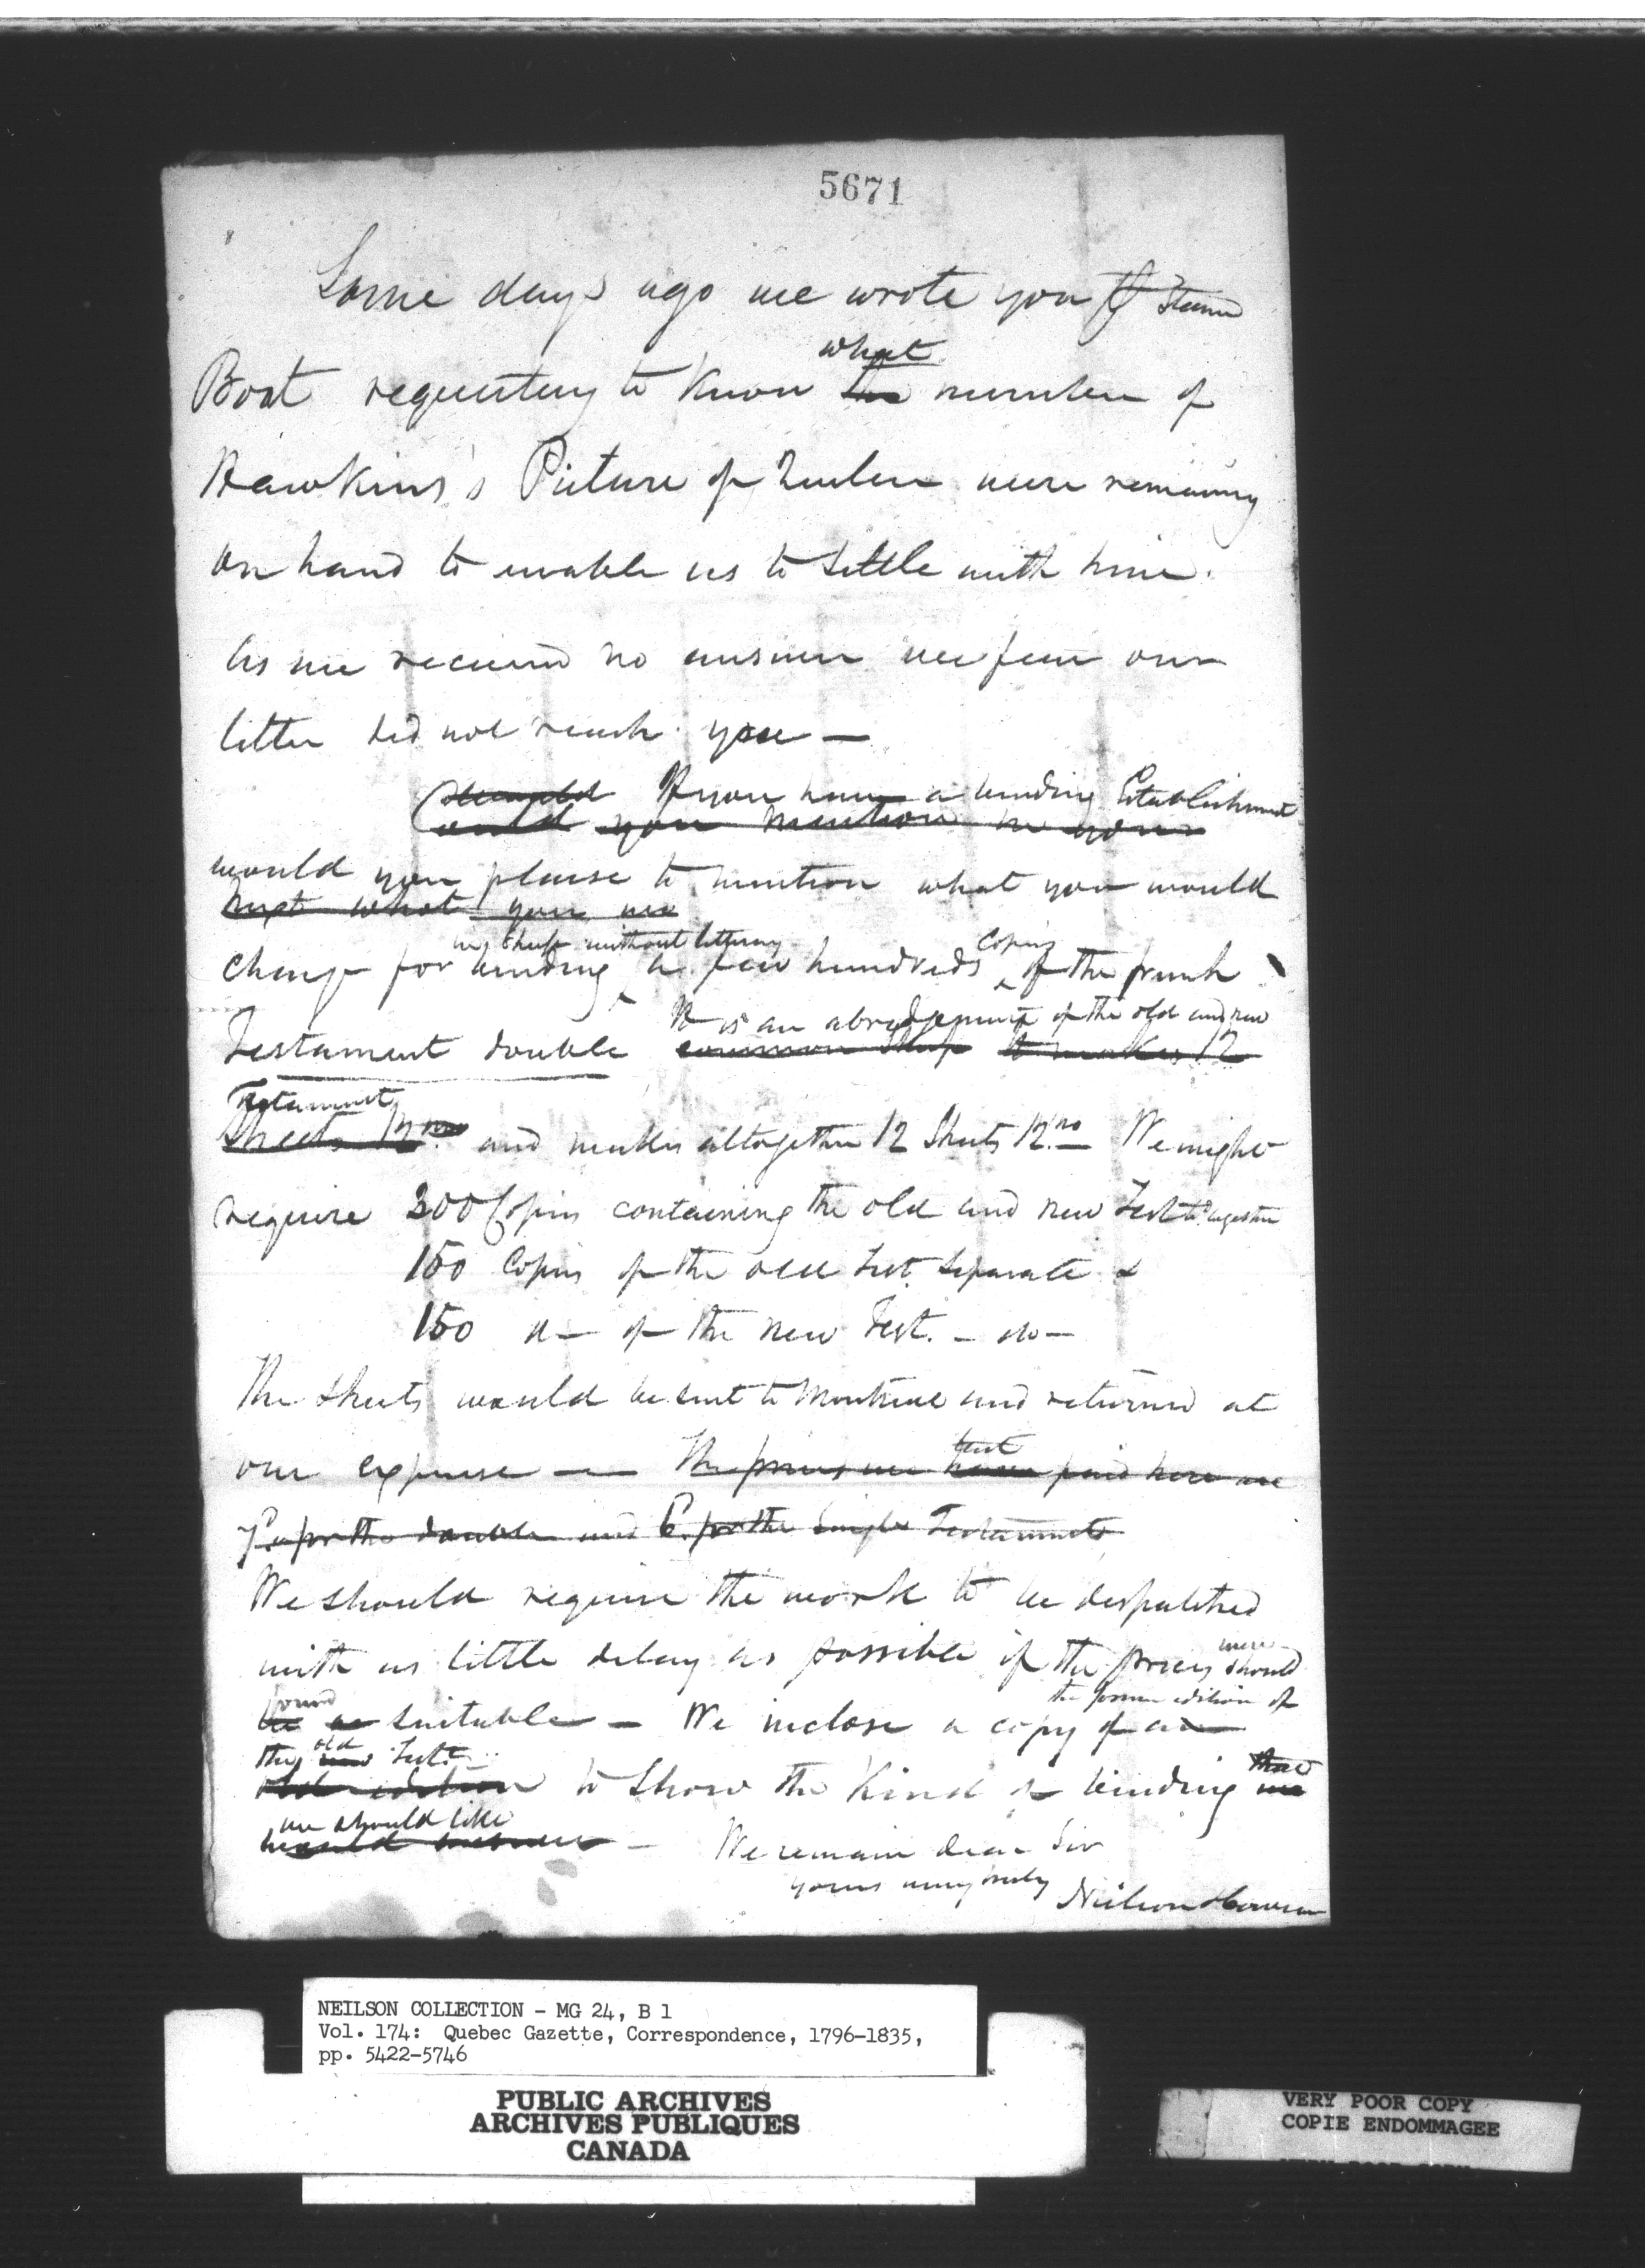 5671
Some days ago we wrote you ⅌ Steam
what
Boat requesting to know the number of
Hawkins's Picture of Quebec were remaining
on hand to enable us to settle with him.
As we received no answer we fear our
letter did not reach you —
If you have a binding Establishment
Could you mention in your
would you please to mention what you would
next what you
in sheep without lettering copies
charge for binding a few hundreds of the french
It is an abridgement of the old and new
Testament double common sheep it makes 12
Testament
Sheets 12mo and makes altogether 12 Sheets 12mo We might
require 300 Copies containing the old and new Test together
150 Copies of the old Test. separate &
150 do — of the new Test. — do —
The Sheets would be sent to Montreal and returned at
last
our expense — The prices we have paid here are
for the double and 6. for the single Testaments
We should require the work to be despatched
were
with as little delay as possible if the prices should
found the former edition of
be as suitable — We inclose a copy of an
old
the new Test.
old edition to show the kind of binding we
we should like
would — We remain dear Sir
yours very truly Neilson & Cowan
NEILSON COLLECTION - MG 24, B 1
Vol. 174: Quebec Gazette, Correspondence, 1796-1835,
pp. 5422-5746
PUBLIC ARCHIVES
ARCHIVES PUBLIQUES
CANADA
VERY POOR COPY
COPIE ENDOMMAGEE